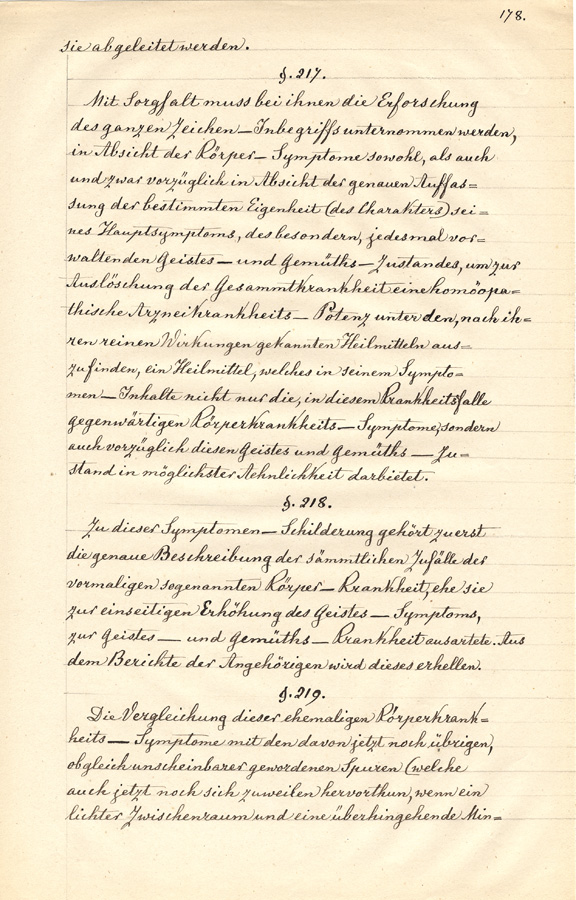 178.
sie abgeleitet werden.
§. 217.
Mit Sorgfalt muss bei ihnen die Erforschung
des ganzen Zeichen—Inbegriffs unternommen werden,
in Absicht der Körper—Symptome sowohl, als auch
und zwar vorzüglich in Absicht der genauen Auffas=
sung der bestimmten Eigenheit (des Charakters) sei=
nes Hauptsymptoms, des besondern, jedesmal vor=
waltenden Geistes—und Gemüths—Zustandes, um zur
Auslöschung der Gesammtkrankheit eine homöopa=
thische Arzneikrankheits—Potenz unter den, nach ih=
ren reinen Wirkungen gekannten Heilmitteln aus=
zufinden, ein Heilmittel, welches in seinem Sympto=
men—Inhalte nicht nur die, in diesem Krankheitsfalle
gegenwärtigen Körperkrankheits—Symptome, sondern
auch vorzüglich diesen Geistes und Gemüths—Zu=
stand in möglichster Aehnlichkeit darbietet.
§. 218.
Zu dieser Symptomen—Schilderung gehört zuerst
die genaue Beschreibung der sämmtlichen Zufälle der
vormaligen sogenannten Körper—Krankheit, ehe sie
zur einseitigen Erhöhung des Geistes—Symptoms,
zur Geistes—und Gemüths—Krankheit ausartete. Aus
dem Berichte der Angehörigen wird dieses erhellen.
§. 219.
Die Vergleichung dieser ehemaligen Körperkrank=
heits—Symptome mit den davon jetzt noch übrigen,
obgleich unscheinbarer gewordenen Spuren (welche
auch jetzt noch sich zuweilen hervorthun, wenn ein
lichter Zwischenraum und eine überhingehende Min=